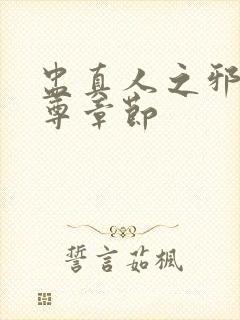 蛊真人之邪
尊章節
誓言茹楓